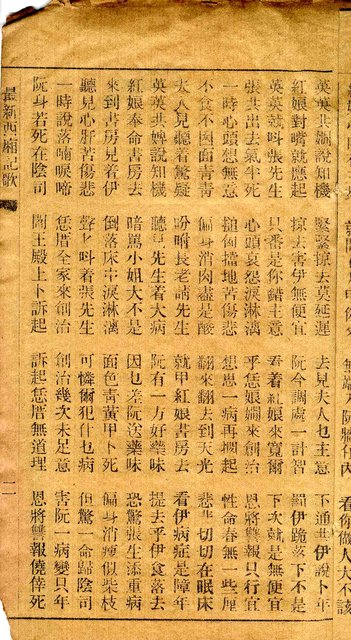 英英共嫺說知機　緊緊掠去莫延遲　去見夫人乜主意　下通共伊說卜年
紅娘對嘴就應起　掠去害伊無便宜　阮今調處一計智　罰伊跪落下不是
英英就叫張先生　只番是你錯主意　看着紅娘來寬爾　下次就是無便宜
張共出去氣半死　心頭哀怨淚淋漓　乎恁娘嫺來創治　恩將讐報只行宜
一時心頭想無意　搥倒擋地苦傷悲　想思一病再擱起　性命春無一些厘
不食不困面青青　偏身消肉盡是酸　翻來翻去到天光　悲悲切切在眠床
夫人聽見着驚疑　吩咐長老請先生　就甲紅娘書房去　看伊病症是障年
英英共婢說知機　聽見先生着大病　阮有一方好藥味　提去乎伊食落去
紅娘奉命書房去　暗罵小姐大不是　因乜差阮送藥味　恐驚張生添重病
來到書房見着伊　倒落床中淚淋漓　面色青黃甲卜死　偏身消瘦似柴枝
聽見心肝苦傷悲　聲乜叫着張先生　可憐爾犯什乜病　但驚一命歸陰司
一時說落喃唳啼　恁厝全家來創治　創治幾次未足意　害阮一病變只年
阮身若死在陰司　閻王殿上卜訴起　訴起恁厝無道理　恩將讐報僥倖死
最新西廂記歌　二